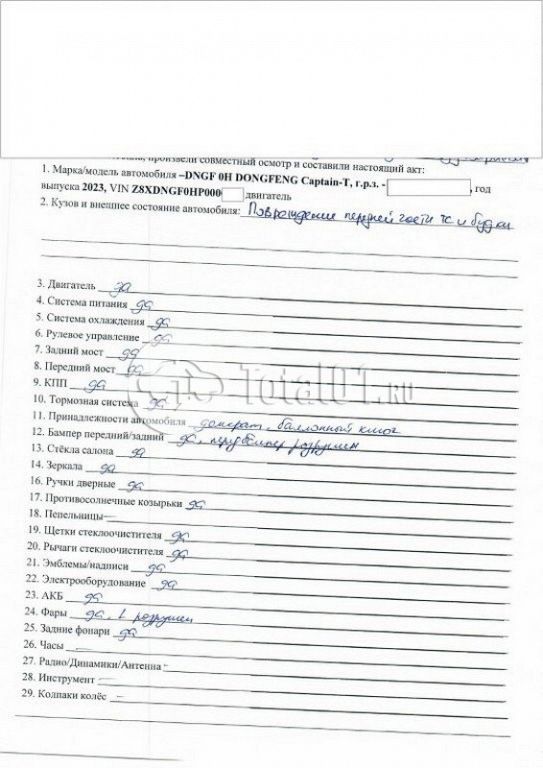 произвели совместный осмотр и составили настоящий акт:
1. Марка/модель автомобиля –DNGF 0H DONGFENG Captain-T, г.р.з. - , год
выпуска 2023, VIN Z8XDNGF0HP000 двигатель
2. Кузов и внешнее состояние автомобиля: Повреждение передней части тс и будки
3. Двигатель да
4. Система питания да
5. Система охлаждения да
6. Рулевое управление да
7. Задний мост да
8. Передний мост да
9. КПП да
Total01.ru
10. Тормозная система да
11. Принадлежности автомобиля домкрат, баллонный ключ
12. Бампер передний/задний да, перед бампер разрушен
13. Стёкла салона да
14. Зеркала да
16. Ручки дверные да
17. Противосолнечные козырьки да
18. Пепельницы –
19. Щетки стеклоочистителя да
20. Рычаги стеклоочистителя да
21. Эмблемы/надписи да
22. Электрооборудование да
23. АКБ да
24. Фары да, разрушен
25. Задние фонари да
26. Часы –
27. Радио/Динамики/Антенна –
28. Инструмент –
29. Колпаки колёс –